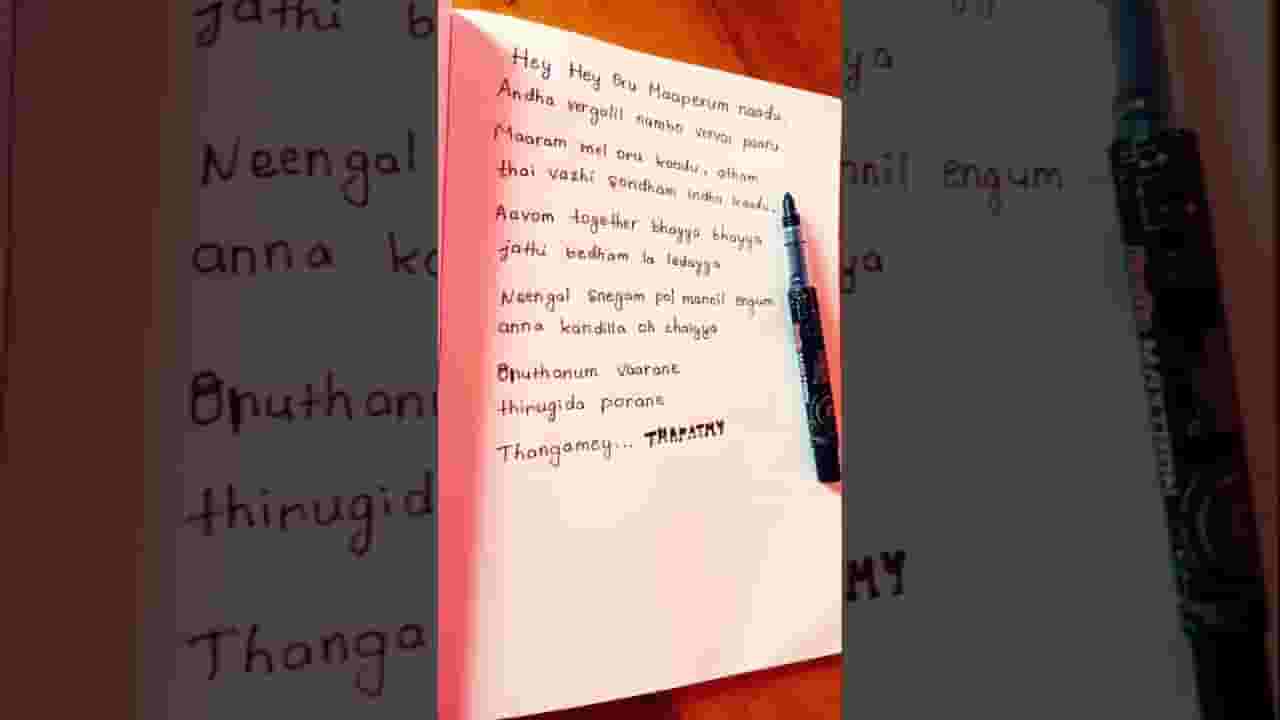 Hey Hey Oru Maaperum naadu,
Andha vergalil namba vervai paaru
Maaram mel oru koodu, atham
thai vazhi sondham indha kaadu,
Aavom together bhayya bhayya
jathi bedham la ledayya
Neengal snegam pol mannil engum
anna kandilla oh chaiyya
Oputhanum vaarane
thirugida porane
Thangamey... THAPATHY